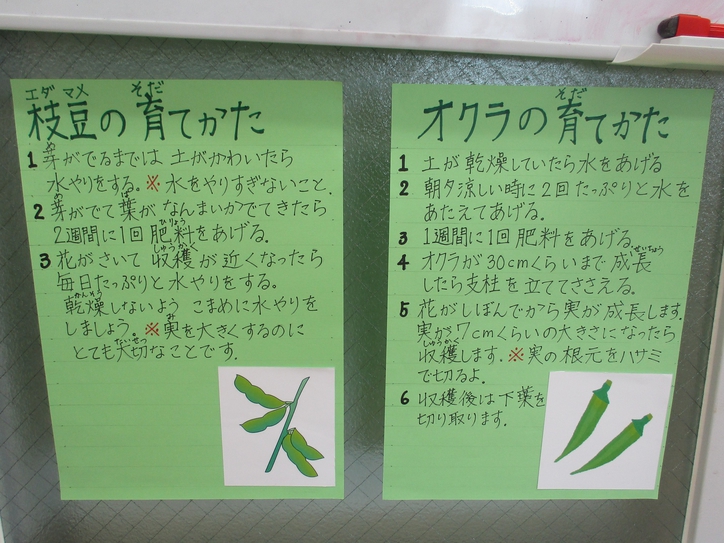 枝豆の育てかた
1 芽がでるまでは土がかわいたら
水やりをする。※水をやりすぎないこと.
2 芽がでて葉がなんまいかでてきたら
2週間に1回肥料をあげる.
3 花がさいて収穫が近くなったら
毎日たっぷりと水やりをする.
乾燥しないようこまめに水やりを
しましょう。※実を大きくするのに
とても大切なことです.
オクラの育てかた
1 土が乾燥していたら水をあげる
2 朝夕涼しい時に2回たっぷりと水を
あたえてあげる.
3 1週間に1回肥料をあげる
4 オクラが30cmくらいまで成長
したら支柱を立ててささえる.
5 花がしぼんでから実が成長します.
実が7cmくらいの大きさになったら
収穫します.※実の根元をハサミ
で切るよ.
6 収穫後は下葉を
切り取ります.